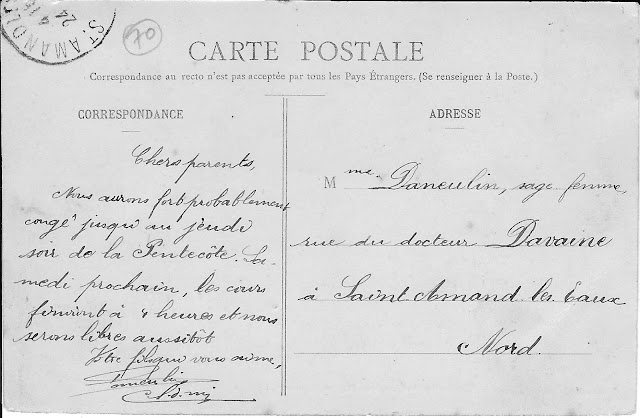 ST AMAND
24
70
CARTE POSTALE
Correspondance au recto n'est pas acceptée par tous les Pays Étrangers. (Se renseigner à la Poste.)
CORRESPONDANCE
Chers parents,
Nous aurons fort probablement
congé jusqu'au jeudi
soir de la Pentecôte. Sa-
medi prochain, les cours
finiront à 4 heures et nous
serons libres aussitôt
Votre fils qui vous aime,
ADRESSE
Mme Daneulin, sage femme,
rue du docteur Davaine
à Saint Amand les Eaux
Nord.